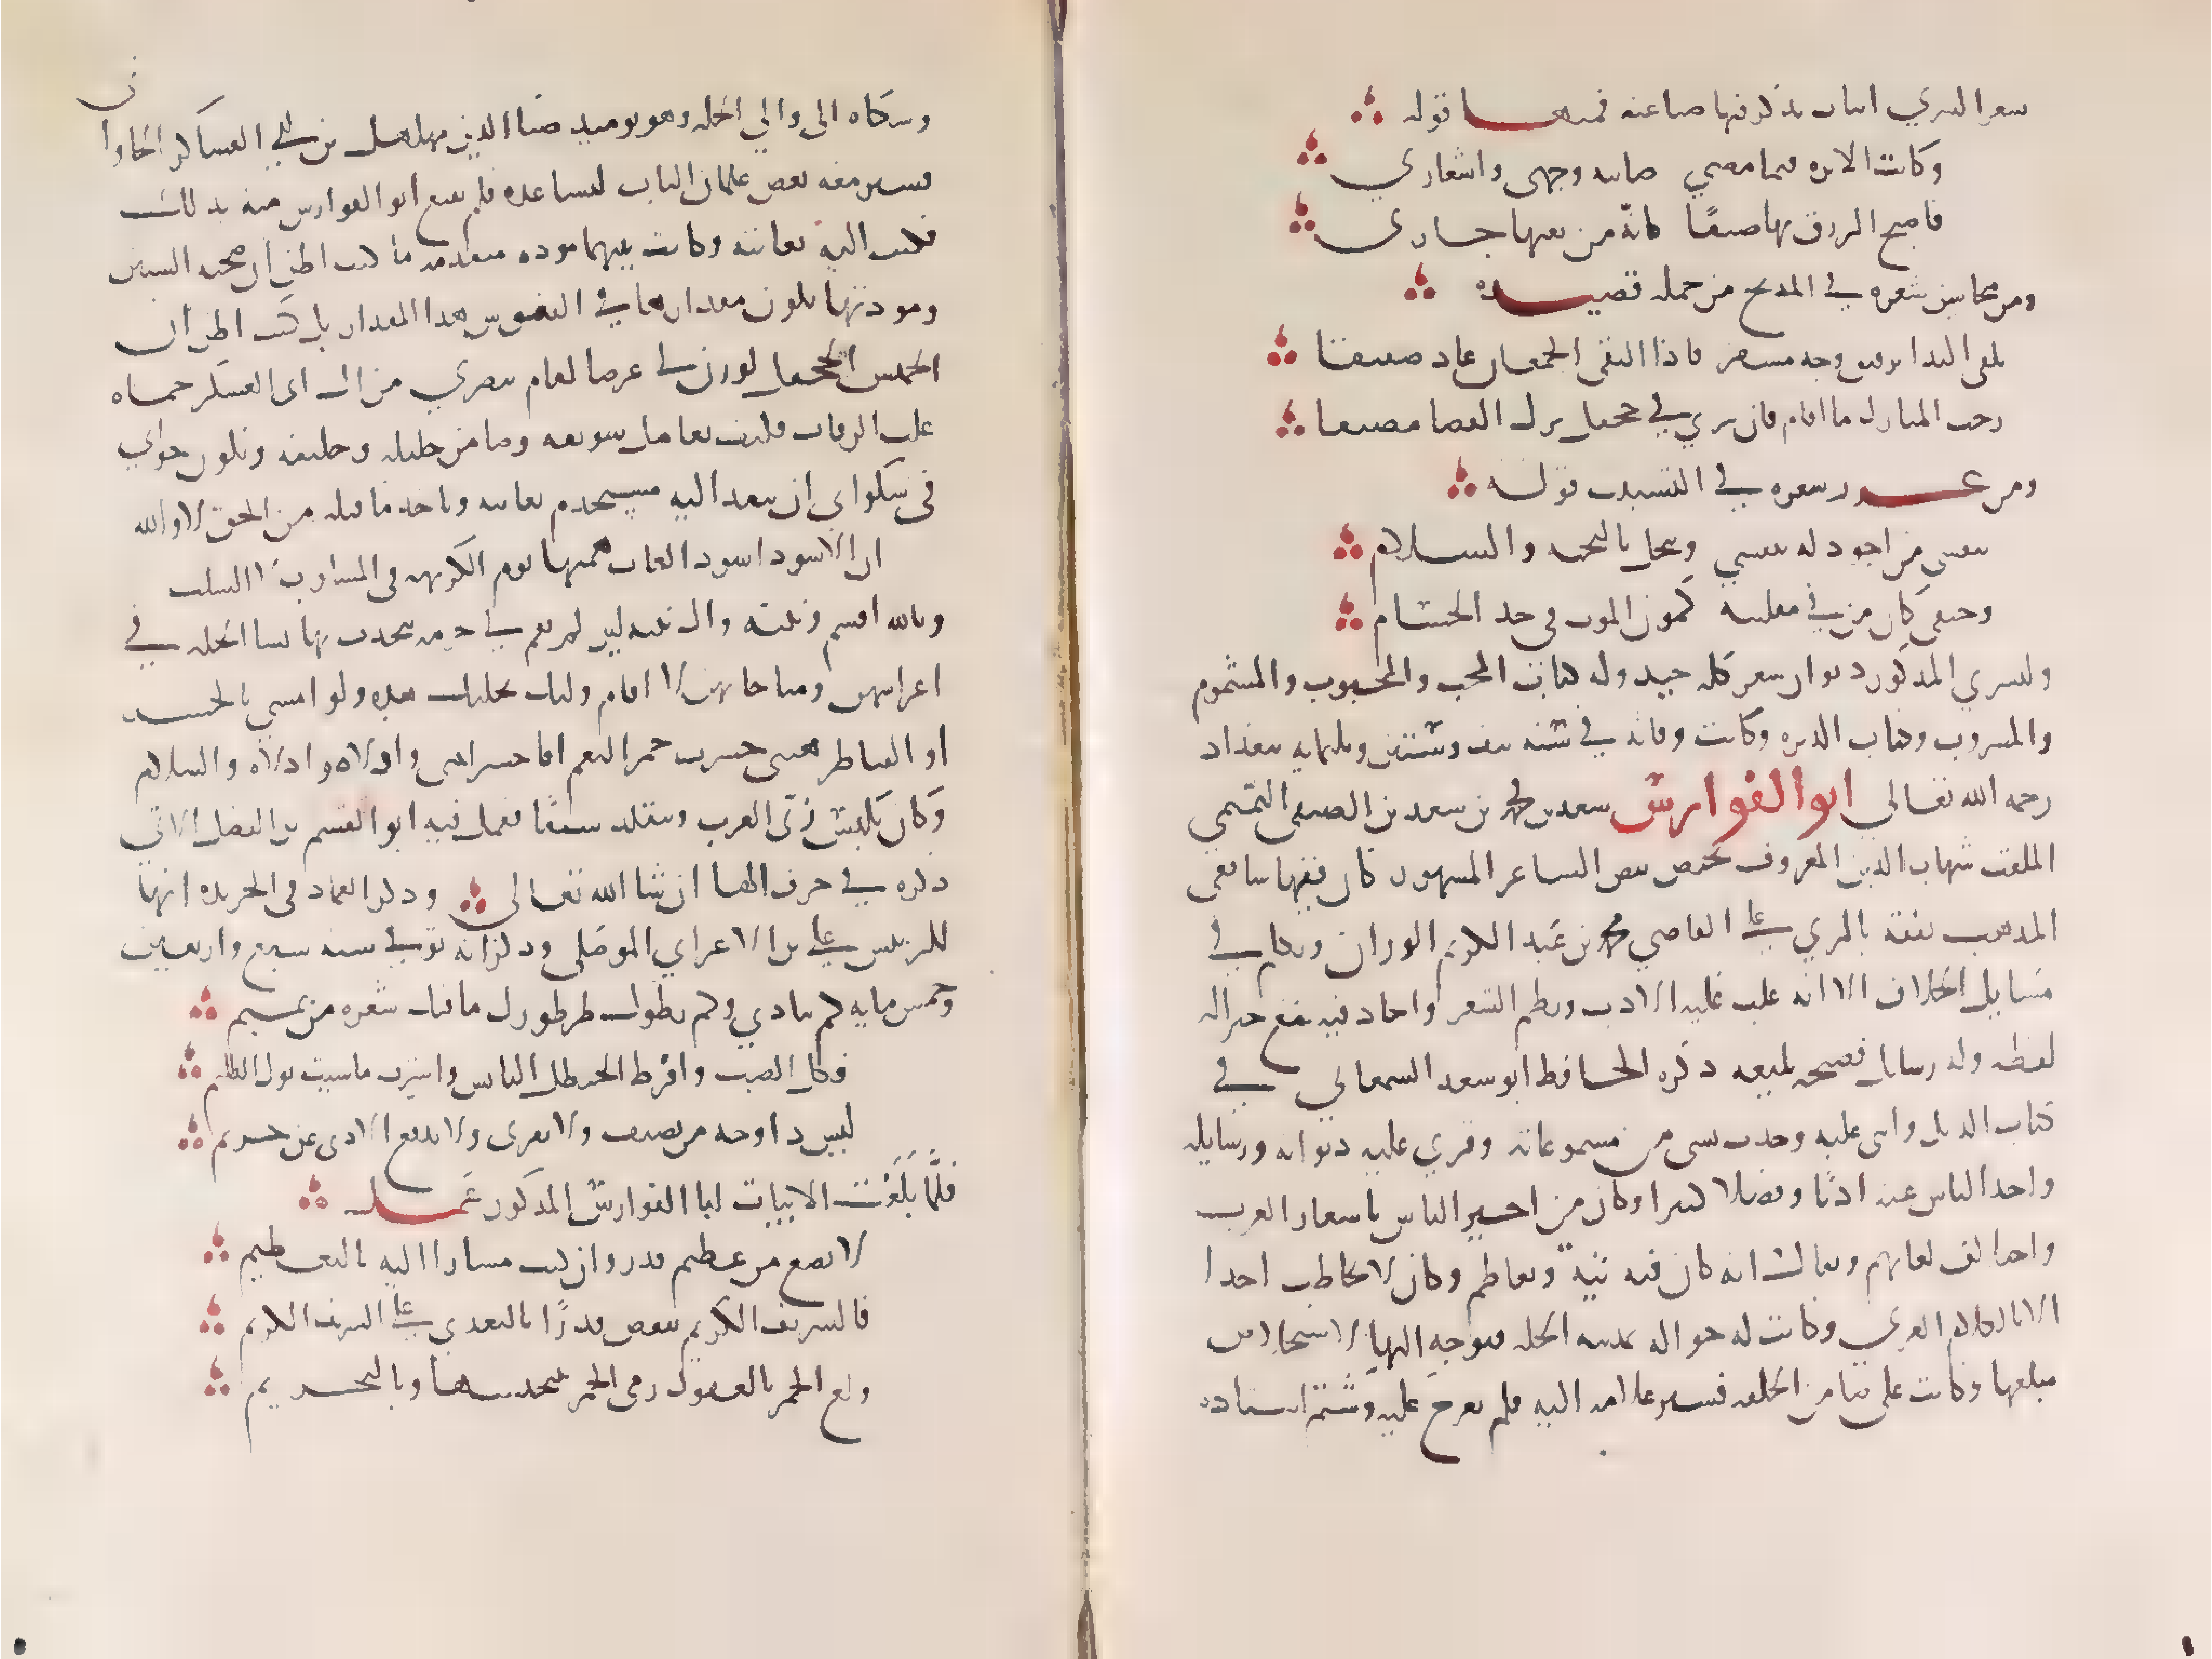 شعر السري ابيات يذكر فيها صناعته فمنها قوله
وكانت الابرة فيما مضى صاينة وجهي واشعاري
فاصبح الرزق بها ضيقًا كانّه من ثقبها جاري
ومن محاسن شعره في المدح من جملة قصيده
يلقى الندا برقيق وجه مسفر فاذا التقى الجمعان عاد صفيقا
رحب المنازل ما اقام فان سرى في جحفل ترك الفضا مضيقا
ومن غرر شعره في النسيب قوله
بنفسي من اجود له بنفسي ويبخل بالتحية والسلام
وحتفي كامن في مقلتيه كمون الموت في حد الحسام
وللسري المذكور ديوان شعر كله جيد وله كتاب المحب والمحبوب والمشموم
والمشروب وكتاب الديرة وكانت وفاته في سنة نيف وستين وثلثمايه ببغداد
رحمه الله تعالى ابو الفوارس سعد بن محمد بن سعد بن الصيفي التميمي
الملقب شهاب الدين المعروف بحيص بيص الشاعر المشهور كان فقيها شافعي
المذهب تفقه بالري على القاضي محمد بن عبد الكريم الوزان وتكلم في
مسايل الخلاف الا انه غلب عليه الادب ونظم الشعر واجاد فيه مع جزالة
لفظه وله رسايل فصيحة بليغه ذكره الحافظ ابو سعد السمعاني في
كتاب الذيل واثنى عليه وحدث بشي من مسموعاته وقري عليه ديوانه ورسايله
واخذ الناس عنه ادبًا وفضلا كثيرا وكان من اخبر الناس باشعار العرب
واختلاف لغاتهم ويقال انه كان فيه تيه وتعاظم وكان لا يخاطب احدا
الا بالكلام العربي وكانت له حوالة بمدينة الحله فتوجه اليها لاستخلاص
مبلغها وكانت على ضامن الحله فسير غلامه اليه فلم يعرج عليه وشتم استاذه
وشكاه الى والي الحله وهو يوميد ضيا الدين مهلهل بن ابي العساكر الجاواني
فسير معه بعض غلمان الباب ليساعده فلم يقنع ابو الفوارس منه بذلك
فكتب اليه يعاتبه وكانت بينهما مودة متقدمه ما كنت اظن ان صحبه السنين
ومودتها يكون مقدارها في النفوس هذا المقدار بل كنت اظن ان
الخميس الجحفل لو زن لي عرضا لقام بنصري من ال ابي العسكر حماة
غلب الرقاب فكيف بعامل سويقه وضامن حليله وحليفه ويكون جوابي
في شكواي ان ينفد اليه مستخدم يعاتبه وياخد ما قبله من الحق لا والله
ان الاسود اسود الغاب همتها يوم الكريهه في المسلوب لا السلب
وبالله اقسم ونبيه وال بيته لين لم تقم لي حرمة يتحدث بها نسا الحله في
اعراسهن ومناحاتهن لا اقام وليك بحلتك هذه ولو امسى بالجسر
او القناطر هبني خسرت حمر النعم افاخسر ابيتي واذلاه واذلاه والسلام
وكان يلبس زي العرب ويتقلد سيفًا فعمل فيه ابو القسم بن الفضل الاتي
ذكره في حرف الها ان شا الله تعالى وذكر العماد في الخريده انها
للرييس علي بن الاعرابي الموصلي وذكر انه توفي سنه سبع واربعين
وخمس مايه كم تبادي وكم تطول طرطورك ما فيك شعره من تميم
فكل الضب واقرط الحنظل اليابس واشرب ما شيت بول الظليم
ليس ذا وجه من يضيف ولا يقري ولا يدفع الادى عن حريم
فلَمَّا بَلَغَت الابيات ابا الفوارس المذكور عَمل
لا تضع من عظيم قدر وان كنت مشارا اليه بالتعظيم
فالشريف الكريم ينقص قدرًا بالتعدي على الشريف الكريم
ولع الخمر بالعقول رمى الخمر بتنجيسها وبالتحريم